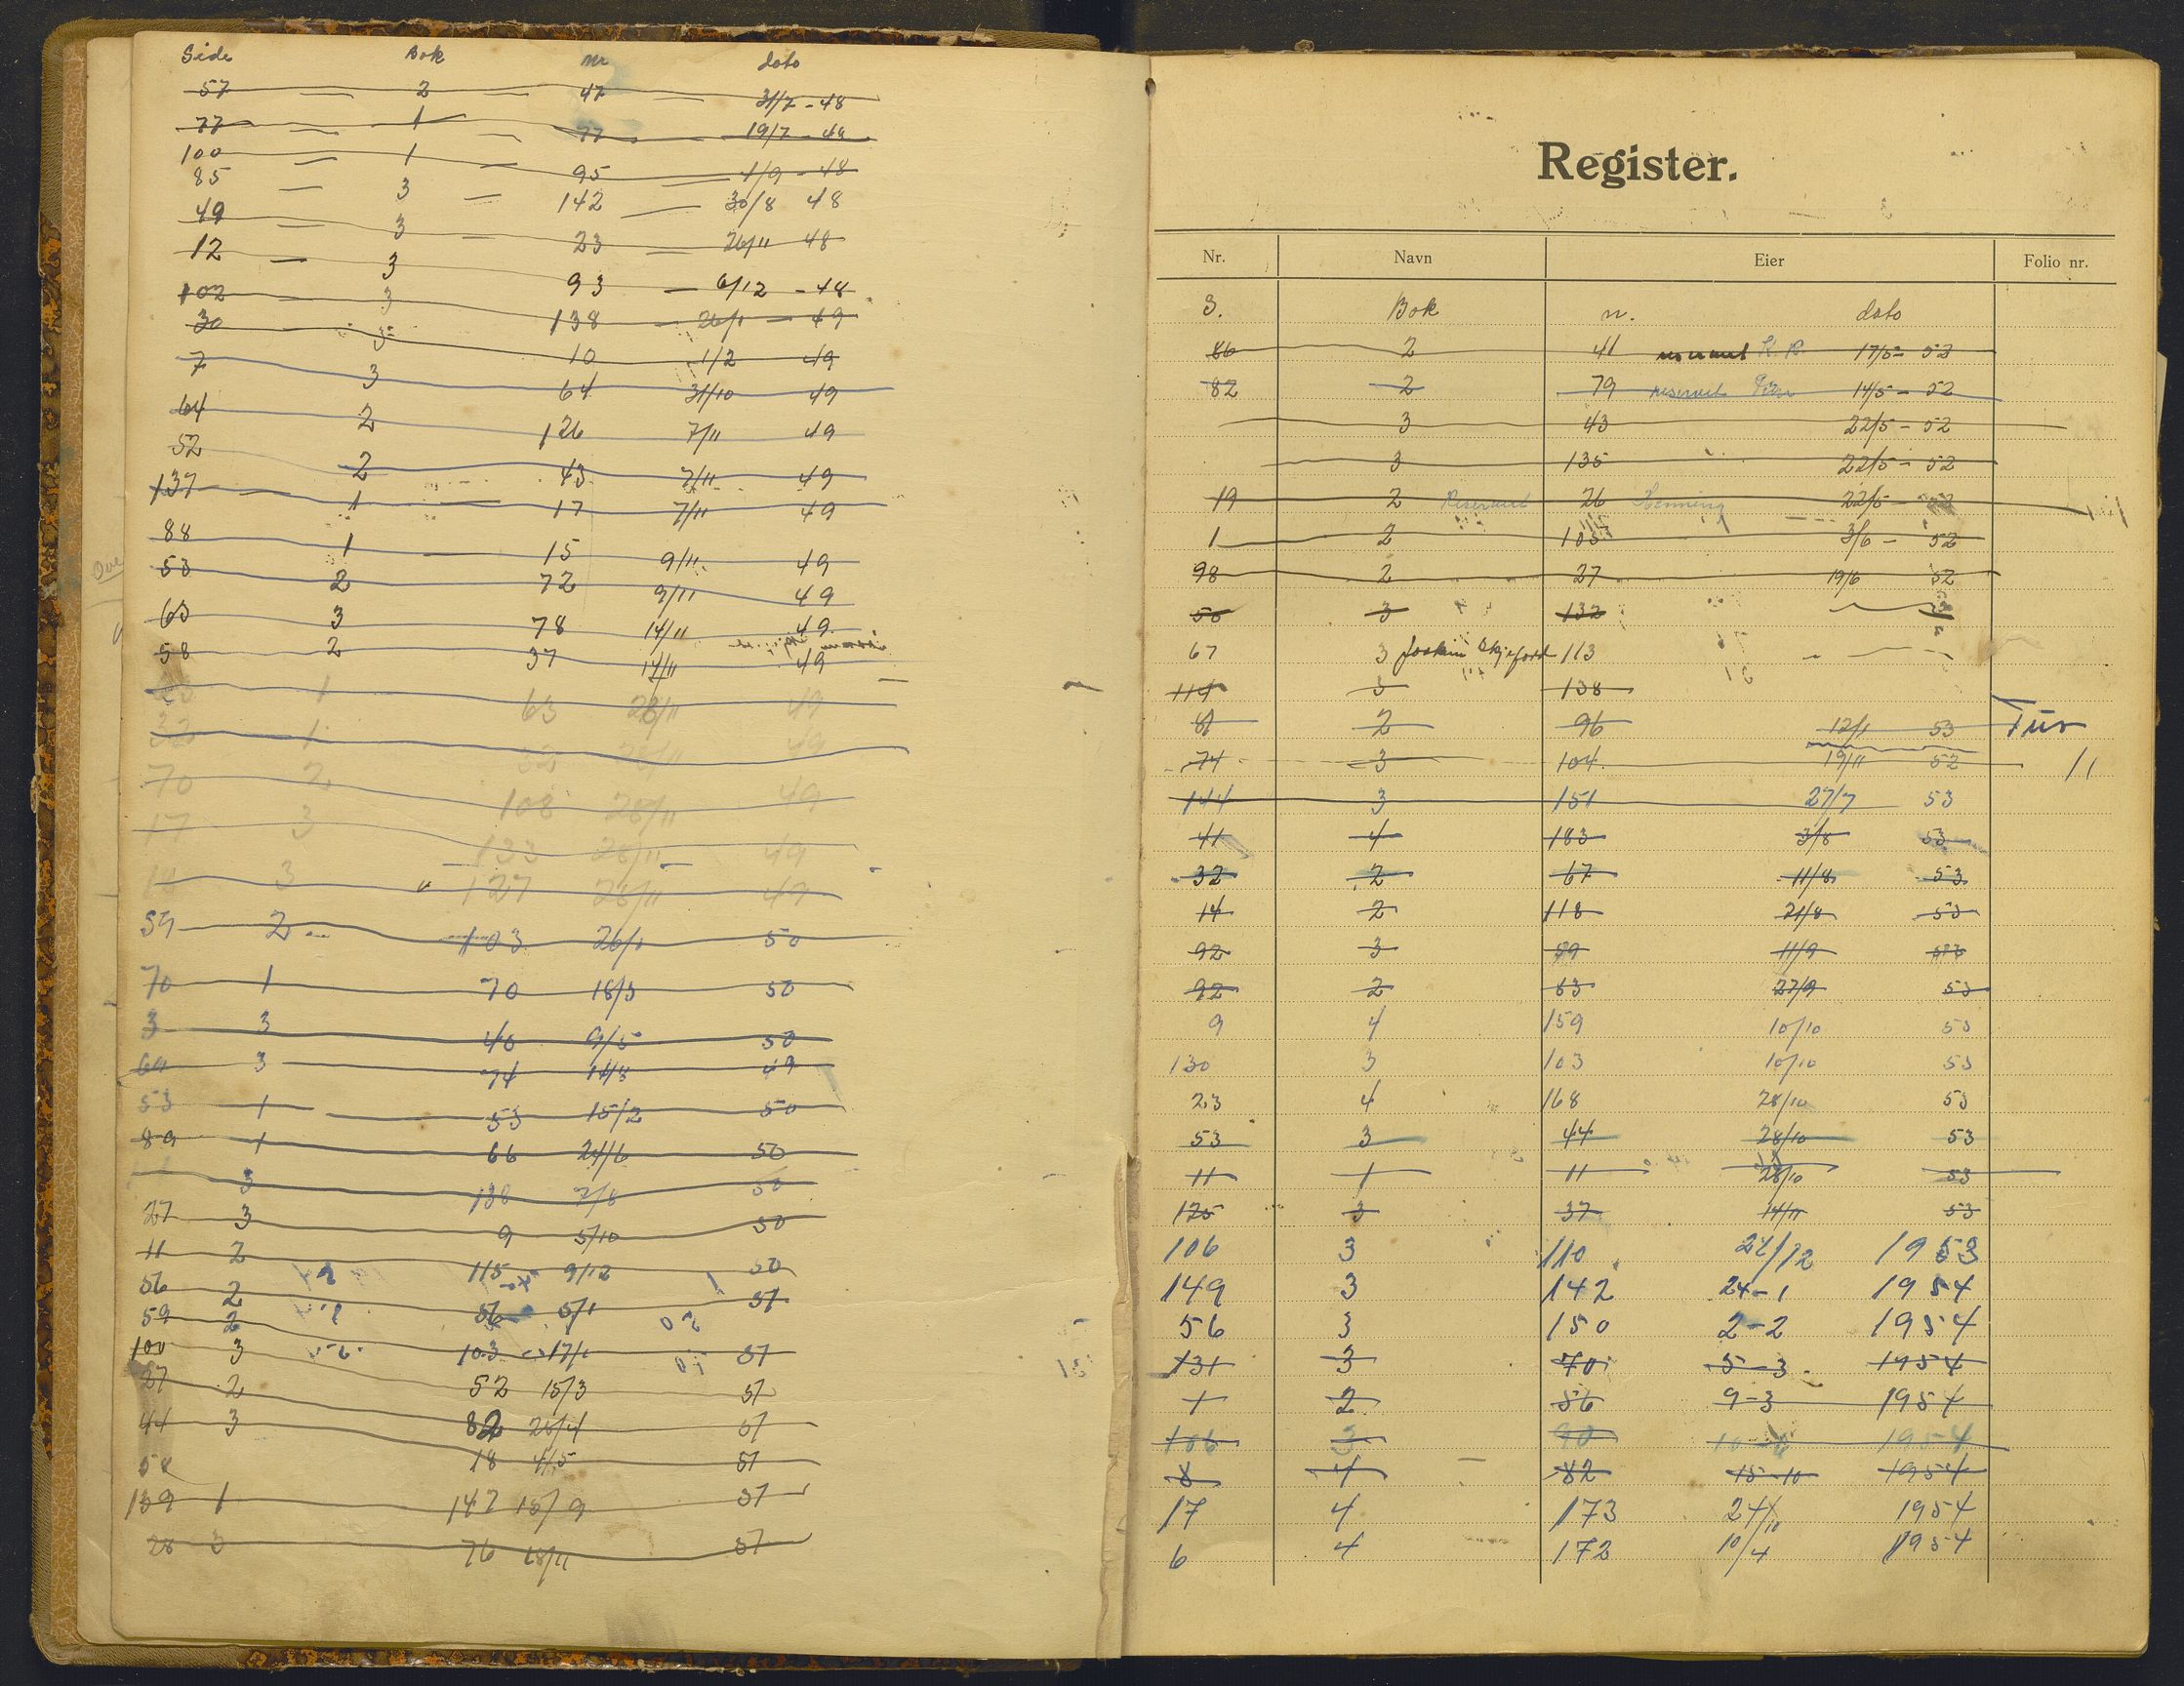 Side Bok nr dato
57 2 47 31/7 - 48
77 1 77 19/7 - 49
100 1 95 1/9 - 48
85 3 142 30/8 48
49 3 23 26/11 48
12 3 93 6/12 - 48
102 3 138 26/1 - 49
30 3 10 1/2 49
7 3 64 31/10 49
64 2 126 7/11 49
52 2 43 7/11 49
137 1 17 7/11 49
88 1 15 9/11 49
53 2 72 9/11 49
60 3 78 14/11 49
58 2 37 14/11 49
1 63 28/11 49
32 1 32 28/11 49
70 2 108 28/11 49
17 3 133 28/11 49
3 127 28/11 49
59 2 103 26/1 50
70 1 70 18/3 50
3 3 40 9/5 50
69 3 74 14/8 49
53 1 53 15/2 50
89 1 66 24/6 50
3 138 7/8 50
27 3 9 5/10 50
11 2 115 9/12 50
56 2 56 5/1 51
59 2 103 17/1 51
100 3 52 15/3 51
27 2 82 25/4 51
44 3 18 4/5 51
58
139 1 147 15/9 51
28 3 76 18/11 51
Register.
Nr. Navn Eier Folio nr.
S. Bok n. dato
86 2 41 reservert K R 17/5 - 52
82 2 79 reservert 14/5 - 52
3 43 22/5 - 52
3 135 22/5 - 52
19 2 Reservert 26 Henning 22/5 - 52
1 2 105 3/6 - 52
98 2 27 19/6 52
50 3 132
67 3 Joakim Skjefold 113
114 3 138
81 2 96 12/1 53
74 3 104 19/11 52 11
144 3 151 27/7 53
41 4 183 3/8 53
32 2 67 11/8 53
14 2 118 21/8 53
92 3 89 11/9 53
92 2 63 27/9 53
9 4 159 10/10 53
130 3 103 10/10 53
23 4 168 28/10 53
53 3 44 28/10 53
11 1 11 28/10 53
125 3 37 14/11 53
106 3 110 22/12 1953
149 3 142 24-1 1954
56 3 150 2-2 1954
131 3 70 5-3 1954
1 2 56 9-3 1954
106 3 90 1954
8 4 82 15-10 1954
17 4 173 24/10 1954
6 4 172 10/4 1954